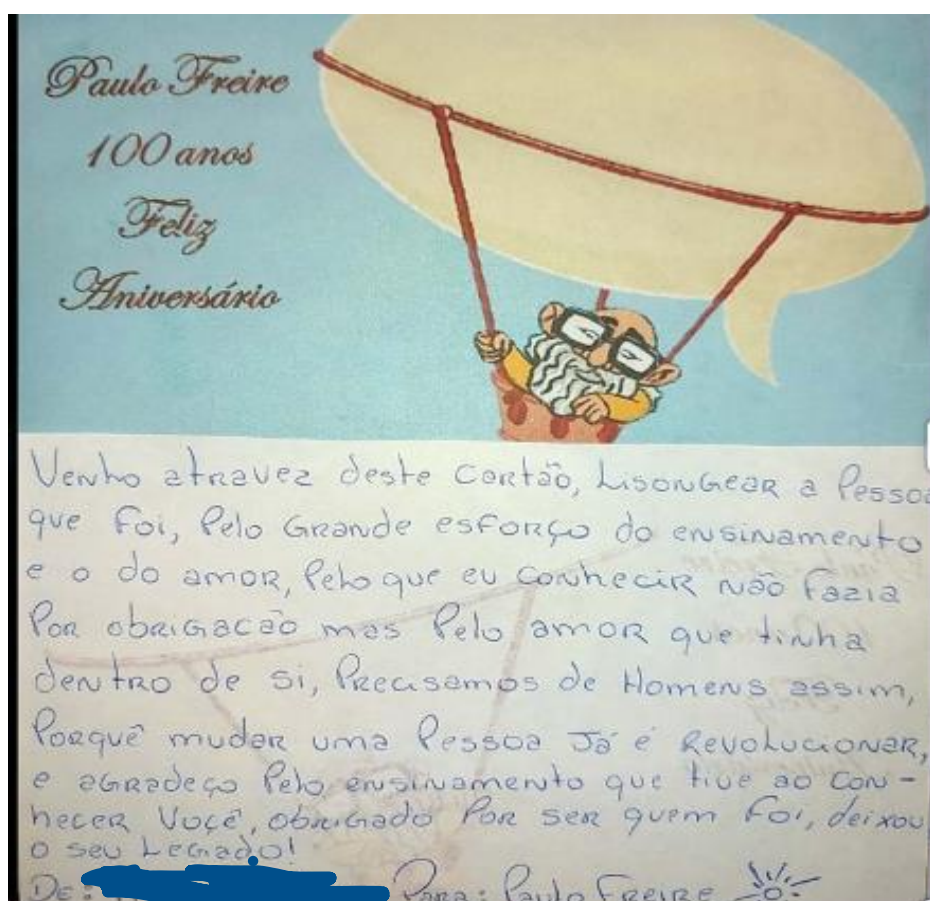 Paulo Freire
100 anos
Feliz
Aniversário
Venho atravez deste cartão, Lisongear a Pessoa
que foi, Pelo Grande esforço do ensinamento
e o do amor, Pelo que eu conhecir não fazia
Por obrigacão mas Pelo amor que tinha
dentro de si, Precisamos de Homens assim,
Porquê mudar uma Pessoa Já é Revolucionar,
e agradeço Pelo ensinamento que tive ao con-
hecer Voçê, obrigado Por ser quem foi, deixou
o seu Legado!
De: Para: Paulo Freire